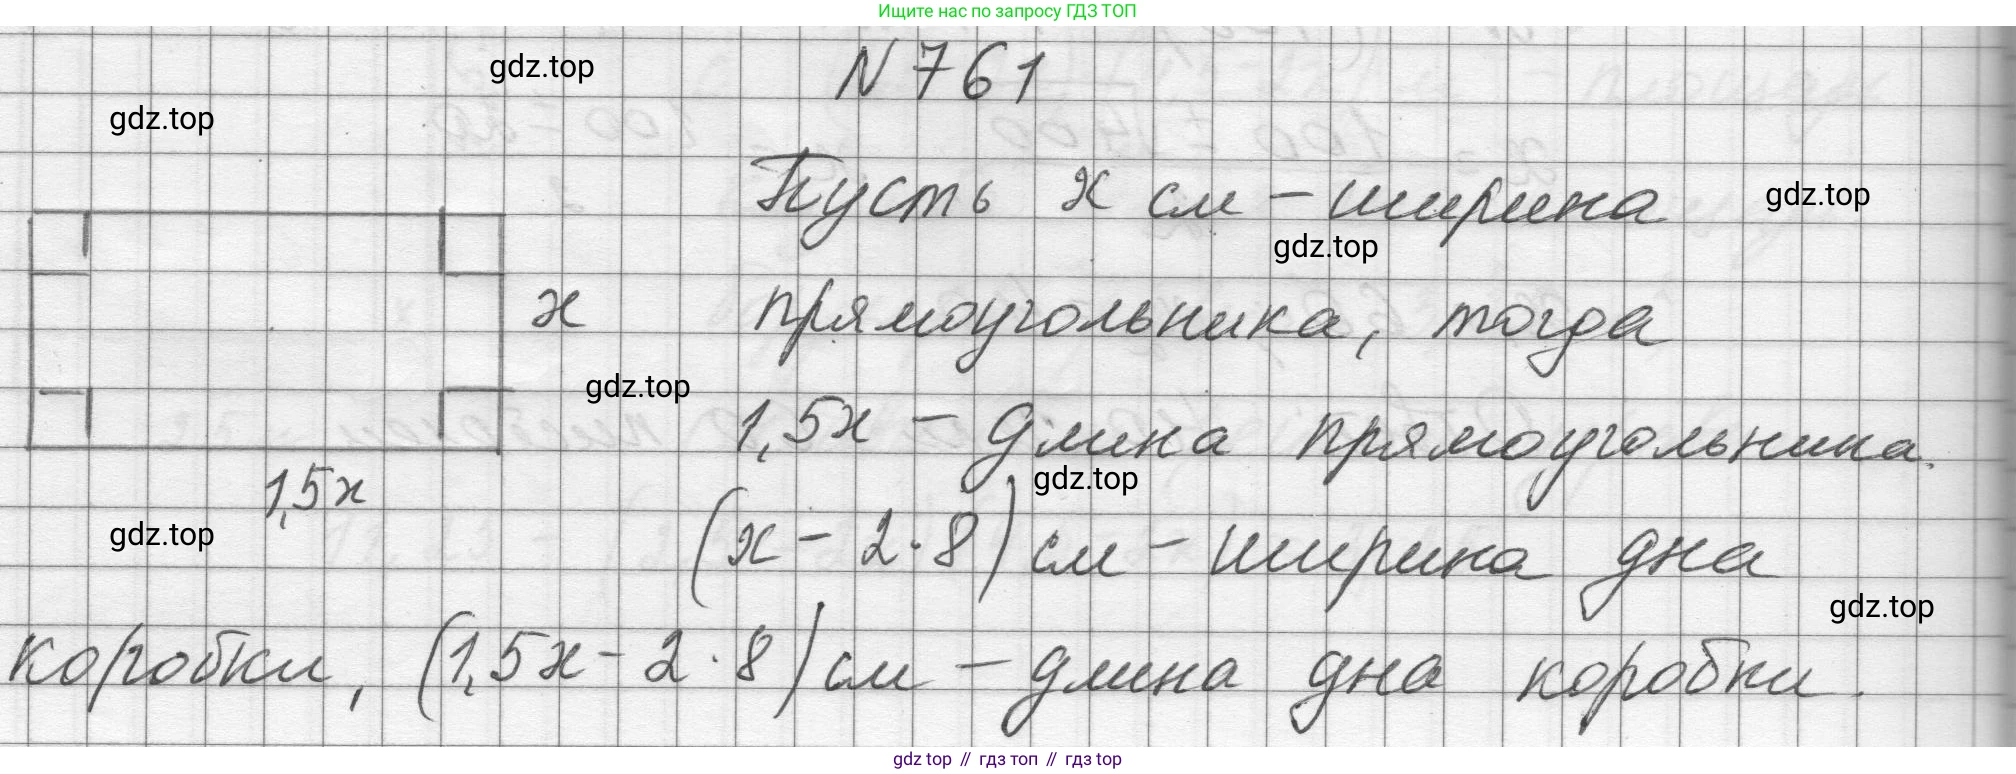 Ищите нас по запросу ГДЗ ТОП
N 761
gdz.top
gdz.top
Пусть x см – ширина
gdz.top
gdz.top
x
прямоугольника, тогда
gdz.top
1,5x – длина прямоугольника.
1,5x
gdz.top
gdz.top
(x – 2·8) см – ширина дна
gdz.top
коробки, (1,5x – 2·8) см – длина дна коробки.
gdz top // гдз топ // гдз top